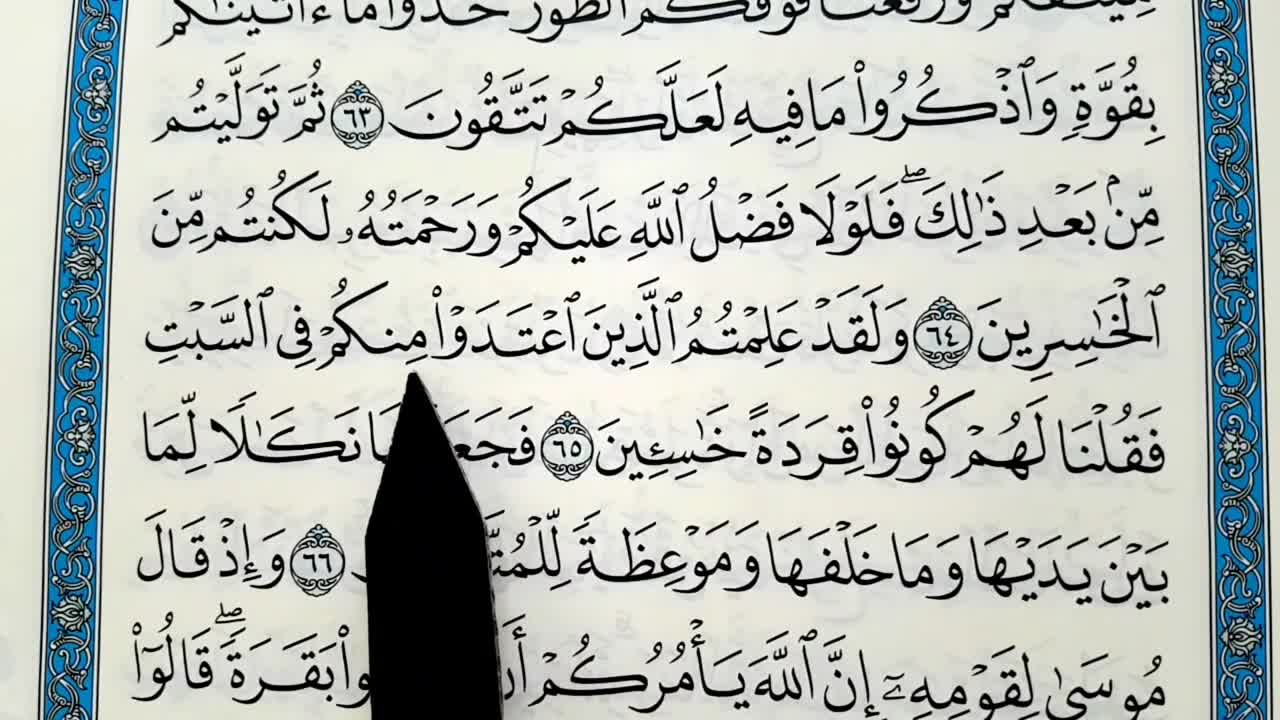 مِيثَٰقَكُمْ وَرَفَعْنَا فَوْقَكُمُ ٱلطُّورَ خُذُوا۟ مَآ ءَاتَيْنَٰكُم
بِقُوَّةٍ وَٱذْكُرُوا۟ مَا فِيهِ لَعَلَّكُمْ تَتَّقُونَ ٦٣ ثُمَّ تَوَلَّيْتُم
مِّنۢ بَعْدِ ذَٰلِكَ ۖ فَلَوْلَا فَضْلُ ٱللَّهِ عَلَيْكُمْ وَرَحْمَتُهُۥ لَكُنتُم مِّنَ
ٱلْخَٰسِرِينَ ٦٤ وَلَقَدْ عَلِمْتُمُ ٱلَّذِينَ ٱعْتَدَوْا۟ مِنكُمْ فِى ٱلسَّبْتِ
فَقُلْنَا لَهُمْ كُونُوا۟ قِرَدَةً خَٰسِـِٔينَ ٦٥ نَكَٰلًا لِّمَا
بَيْنَ يَدَيْهَا وَمَا خَلْفَهَا وَمَوْعِظَةً ٦٦ وَإِذْ قَالَ
مُوسَىٰ لِقَوْمِهِۦٓ إِنَّ ٱللَّهَ يَأْمُرُكُمْ بَقَرَةً ۖ قَالُوٓا۟